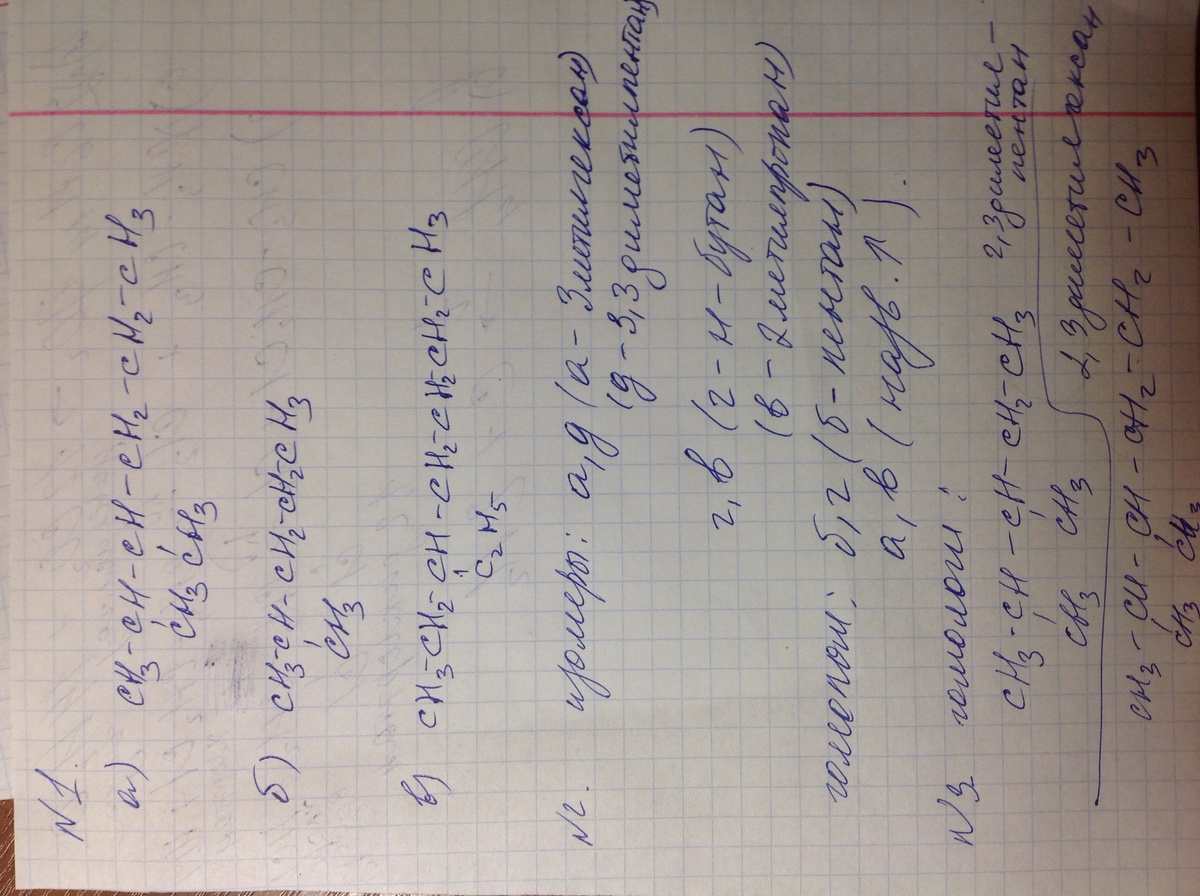 N1
а) CH3-CH-CH-CH2-CH2-CH3
CH3 CH3
б) CH3-CH-CH2-CH2-CH3
CH3
в) CH3-CH2-CH-CH2-CH2-CH2-CH3
C2H5
N2. изомеры: а,д (а-3метилгексан)
(д-3,3диметилпентан)
г,в (г-н-бутан)
(в-2метилпропан)
гомологи: б,г (б-пентан)
а,в (назв. ↑).
N3 гомологи:
CH3-CH-CH-CH2-CH3 2,3диметил-
пентан
CH3 CH3
2,3диметилгексан
CH3-CH-CH-CH2-CH2-CH3
CH3 CH3